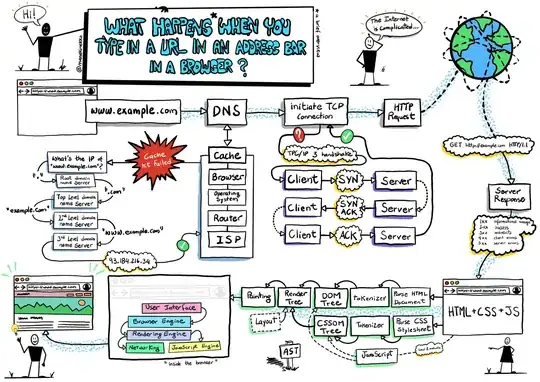 Hi!
WHAT HAPPENS WHEN YOU
TYPE IN A URL IN AN ADDRESS BAR
IN A BROWSER?
The Internet
is complicated...
www.example.com
DNS
initiate TCP
connection
HTTP
Request
Cache
Browser
Operating
System
Router
ISP
Cache
Failed
What's the IP of
"www.example.com"?
Root domain
name Server
".com"
Top Level domain
name Server
"example.com"
2nd Level domain
name Server
"www.example.com"
3rd Level domain
name Server
93.184.216.34
TPC/IP 3 handshake
Client
SYN
Server
Client
SYN
ACK
Server
Client
ACK
Server
GET http://example.com HTTP/1.1
Server
Response
HTML+CSS+JS
Parse HTML
Document
Tokenizer
DOM
Tree
Render
Tree
Painting
Layout
Parse CSS
Stylesheet
Tokenizer
CSSOM
Tree
JavaScript
AST
User Interface
Browser Engine
Rendering Engine
Networking
JavaScript Engine
"inside the browser"